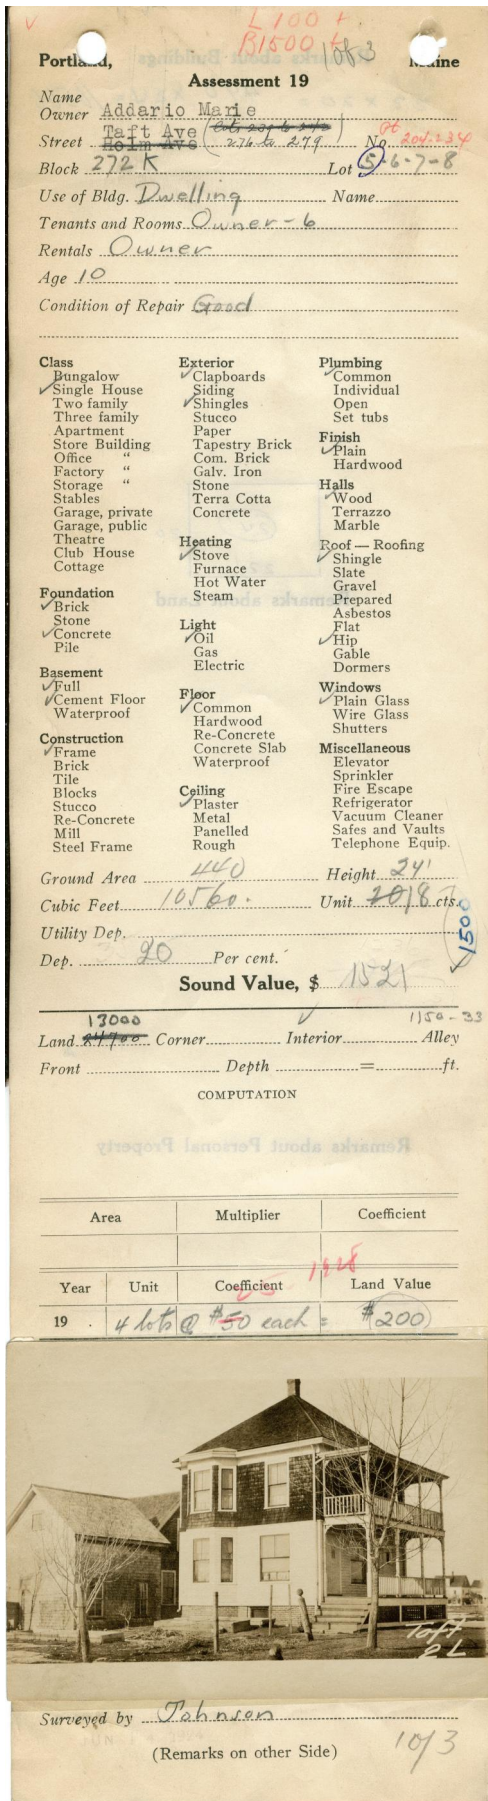 L 100 +
B 1500 +
1 of 3
Portland, Maine
Assessment 19
Name
Owner Addario Marie
Taft Ave (Lots 239 to 242)
Street Holm Ave 276 to 279 No. Pt 204-234
Block 272 K Lot 5-6-7-8
Use of Bldg. Dwelling Name
Tenants and Rooms Owner - 6
Rentals Owner
Age 10
Condition of Repair Good
Class
✓ Bungalow
✓ Single House
Two family
Three family
Apartment
Store Building
Office "
Factory "
Storage "
Stables
Garage, private
Garage, public
Theatre
Club House
Cottage
Foundation
✓ Brick
Stone
✓ Concrete
Pile
Basement
✓ Full
✓ Cement Floor
Waterproof
Construction
✓ Frame
Brick
Tile
Blocks
Stucco
Re-Concrete
Mill
Steel Frame
Exterior
✓ Clapboards
Siding
✓ Shingles
Stucco
Paper
Tapestry Brick
Com. Brick
Galv. Iron
Stone
Terra Cotta
Concrete
Heating
✓ Stove
Furnace
Hot Water
Steam
Light
✓ Oil
Gas
Electric
Floor
✓ Common
Hardwood
Re-Concrete
Concrete Slab
Waterproof
Ceiling
✓ Plaster
Metal
Panelled
Rough
Plumbing
✓ Common
Individual
Open
Set tubs
Finish
✓ Plain
Hardwood
Halls
✓ Wood
Terrazzo
Marble
Roof — Roofing
✓ Shingle
Slate
Gravel
Prepared
Asbestos
Flat
✓ Hip
Gable
Dormers
Windows
✓ Plain Glass
Wire Glass
Shutters
Miscellaneous
Elevator
Sprinkler
Fire Escape
Refrigerator
Vacuum Cleaner
Safes and Vaults
Telephone Equip.
Ground Area 440 Height 24'
Cubic Feet 10560. Unit 20 18 cts.
Utility Dep.
1500
Dep. 20 Per cent.
Sound Value, $ 1521
13000 1150-33
Land 24700 Corner Interior ✓ Alley
Front Depth = ft.
COMPUTATION
Area Multiplier Coefficient
1928
Year Unit Coefficient Land Value
25
19 . 4 lots @ $50 each = $200
Taft
2 L
Surveyed by Johnson
(Remarks on other Side)
1 of 3